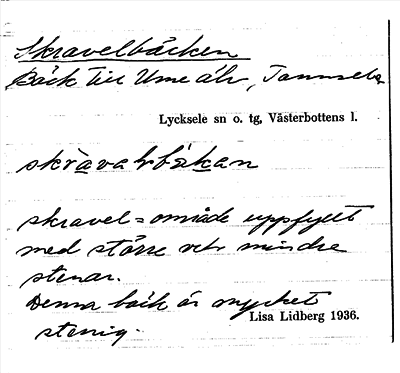 Skravelbäcken
Bäck till Ume älv, Tannsele
Lycksele sn o. tg, Västerbottens l.
skràvahbä̀kan
skravel = område uppfyllt
med större och mindre
stenar.
Denna bäck är mycket
stenig.
Lisa Lidberg 1936.